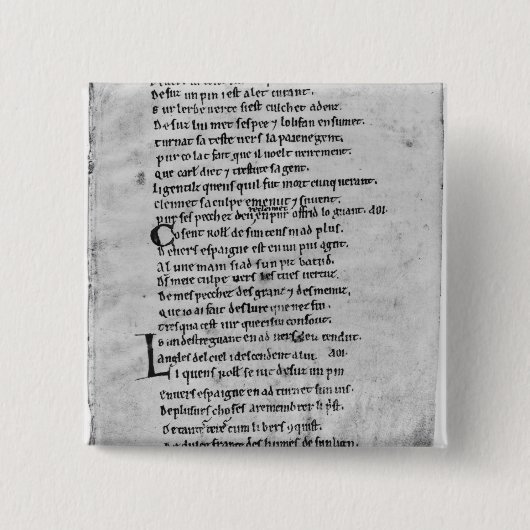 Desuz un pin i est alet curant.
Sur lerbe uerte si est culchet adenz.
Desuz lui met sespee 7 lolifan ensumet.
turnat sa teste uers la paiene gent.
pur co lat fait que il uoelt ueirement.
Que carl diet 7 trestute sa gent.
Li gentilz quens quil fut mort cunquerant.
cleimet sa culpe e menut 7 suuent.
pur ses pecchez deu en puroffrid lo guant. AOI.
recleimet
Co sent Roll de sun tens ni ad plus.
Deuers espaigne est en un pui agut.
A lune main si ad sun piz batud.
Deus meie culpe uers les tues uertuz.
De mes pecchez des granz 7 des menuz.
Que io ai fait des lure que nez fui.
tresqua cest iur que ci sui consout.
Sun destre guant en ad uers deu tendut.
Langles del ciel i descendent a lui. AOI.
Li quens Roll se iut desuz un pin
enuers espaigne en ad turnet sun uis.
De plusurs choses a remembrer li prist.
De tantes teres cum li bers cunquist.
De dulce france des humes de sun lign